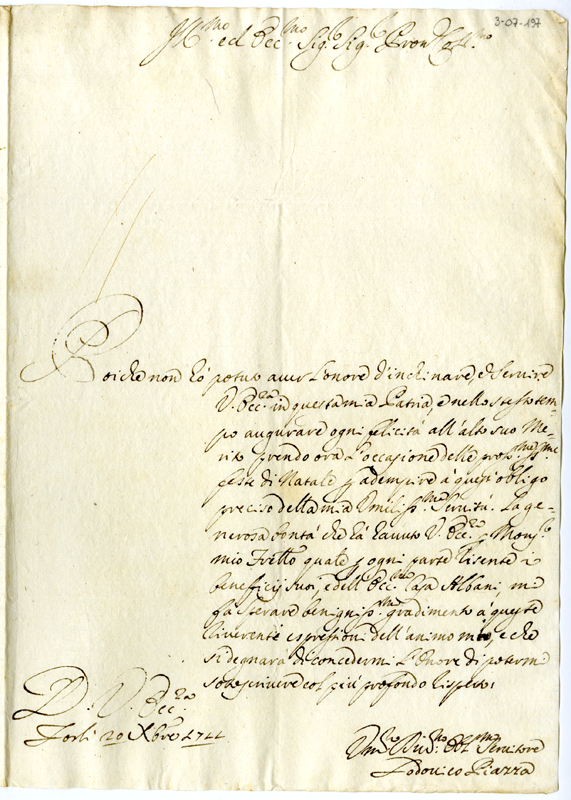 3-07-197
Ill.mo ed Ecc.mo Sig.r Sig.r Pron Col.mo
Poiche non hò potuto aver l'onore d'inchinare, e servire
V. Ecc.za in questa mia Patria, e nello stesso tem-
po augurare ogni felicità all'alto suo Me-
rito prendo ora l'occasione delle pros.me SS.me
feste di Natale p adempire à quest'obligo
preciso della mia Umiliss.ma Servitù. La ge-
nerosa bontà che hà hauuto V. Ecc.za p Mons.r
mio Frello quale p ogni parte risente i
beneficij suoi, e dell'Ecc.ma Casa Albani, mi
fà sperare benigniss.mo gradimento à queste
riverenti espressioni dell'animo mio, e che
si degnarà di concedermi l'onore di potermi
sottoscrivere col più profondo rispetto
D. V. Ecc.za
Forlì 20 Xbre 1744
Um.o Div.mo Obl.mo Servitore
Lodovico Piazza